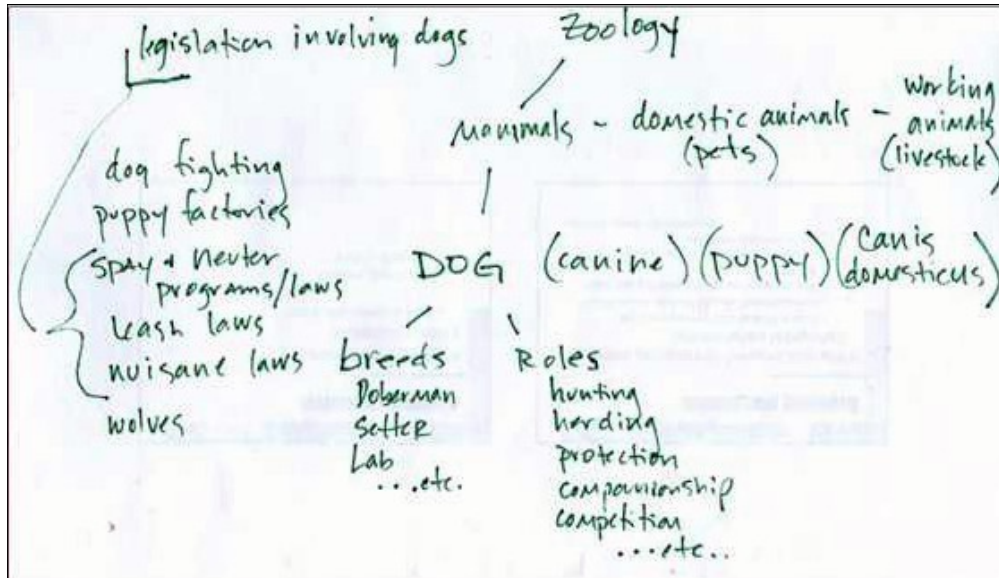 legislation involving dogs
Zoology
Mammals - domestic animals - working
(pets)
animals
(livestock)
dog fighting
puppy factories
spay + neuter
programs/laws
leash laws
nuisane laws
wolves
DOG (canine) (puppy) (Canis
domesticus)
breeds
Doberman
Setter
Lab
...etc.
Roles
hunting
herding
protection
companionship
competition
...etc..